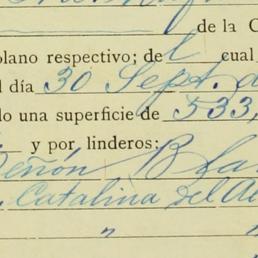 de la C
plano respectivo; del cual,
l día 30 Sept. d
do una superficie de 533,
y por linderos:
eñón Bla
Catalina del Al
"